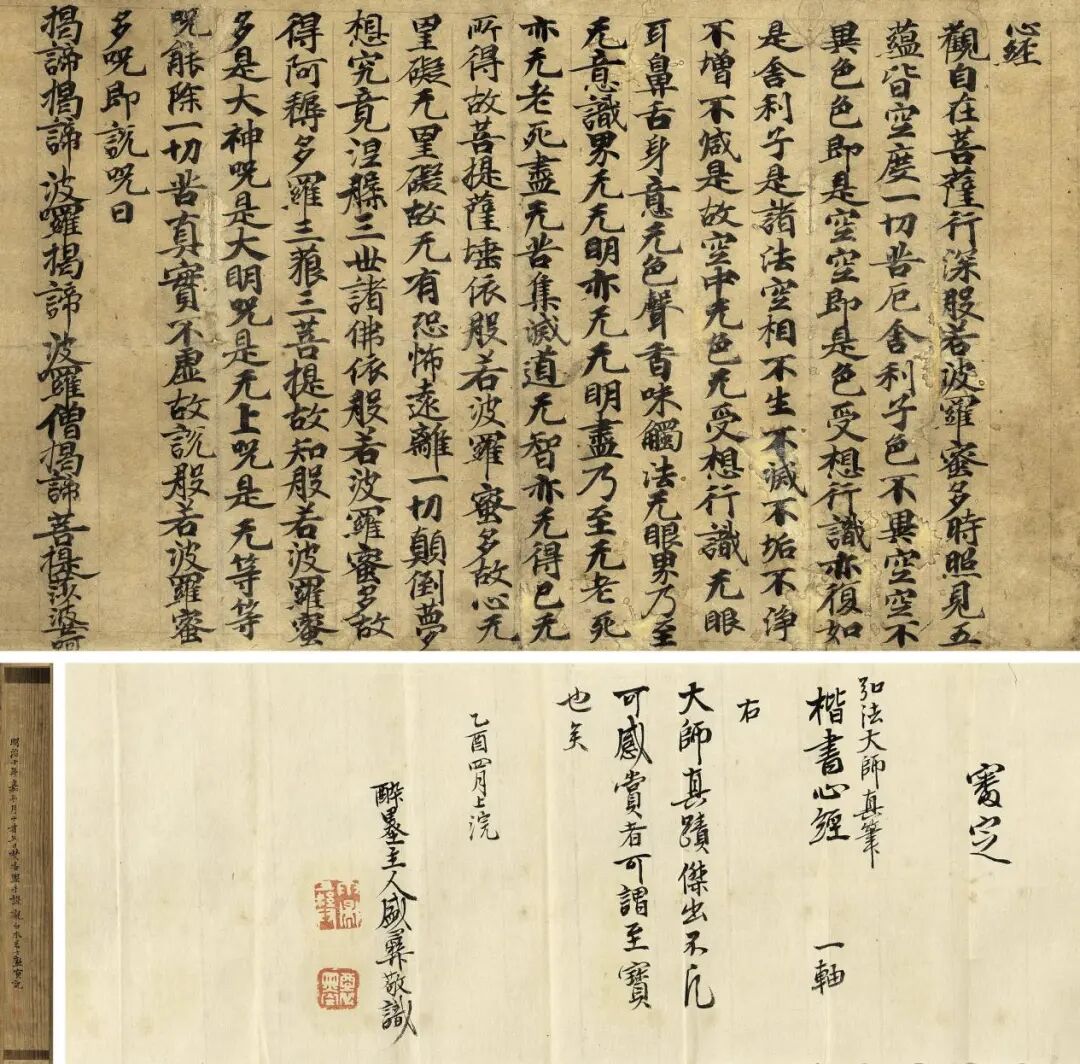 心経
觀自在菩薩行深般若波羅蜜多時照見五
蘊皆空度一切苦厄舍利子色不異空空不
異色色即是空空即是色受想行識亦復如
是舍利子是諸法空相不生不滅不垢不浄
不增不減是故空中无色无受想行識无眼
耳鼻舌身意无色聲香味觸法无眼界乃至
无意識界无无明亦无无明盡乃至无老死
亦无老死盡无苦集滅道无智亦无得已无
所得故菩提薩埵依般若波羅蜜多故心无
罣礙无罣礙故无有恐怖遠離一切顛倒夢
想究竟涅槃三世諸佛依般若波羅蜜多故
得阿耨多羅三藐三菩提故知般若波羅蜜
多是大神呪是大明呪是无上呪是无等等
呪能除一切苦真實不虛故說般若波羅蜜
多呪即說呪曰
揭諦揭諦 波羅揭諦 波羅僧揭諦菩提莎婆訶
審定
弘法大師真筆
楷書心經 一軸
右
大師真蹟傑出不凡
可感賞者可謂至寶
也矣
乙酉四月上浣
醉墨主人盛彝敬識
明治十年